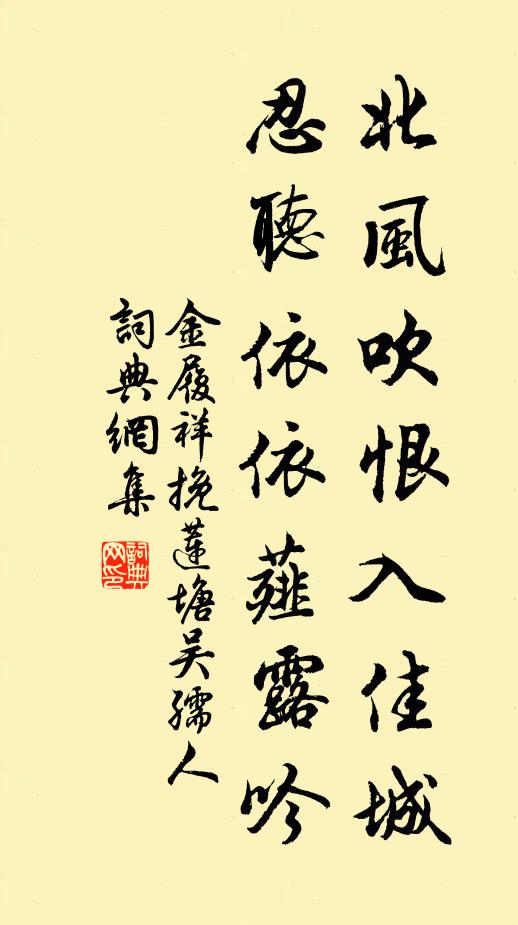 北風吹恨入佳城
忍聽依依薤露吟
金履祥挽蓮塘吳孺人
詞典網集
詞典网印